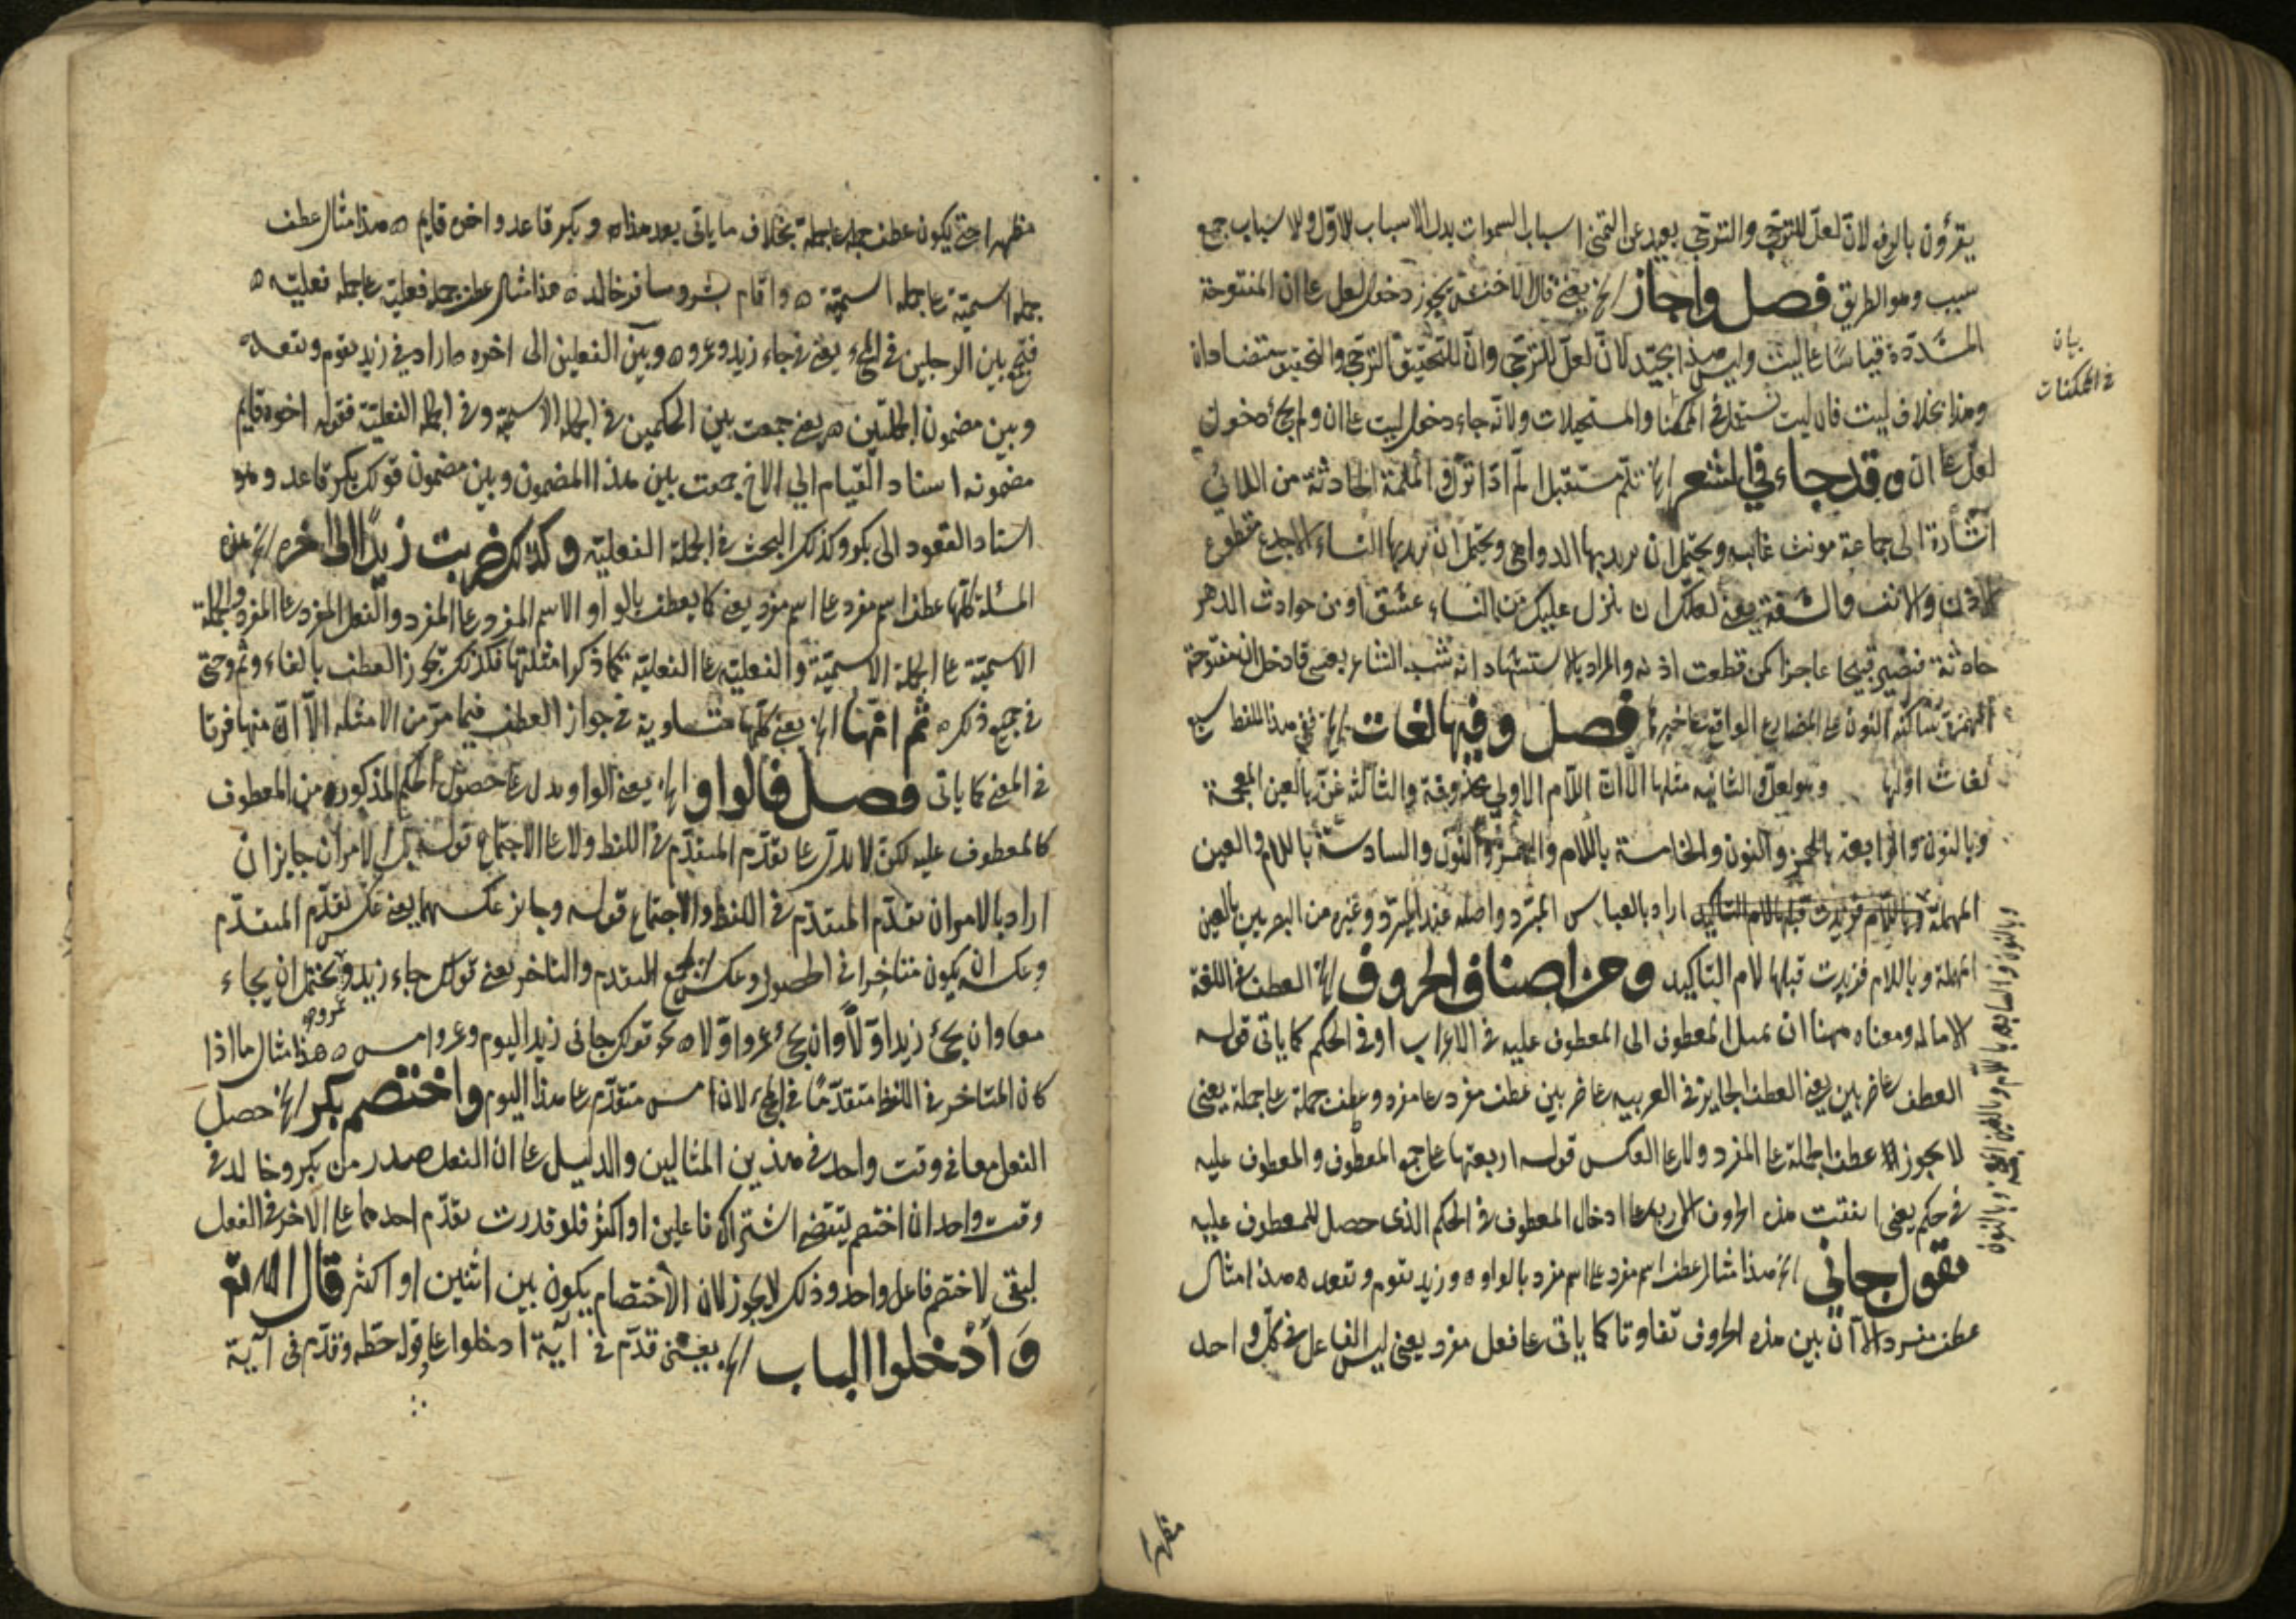 يقرؤن بالرفع لانّ لعلّ للترجّي والترجّي بعيد عن التمنّي اسباب السموات بدل الاسباب الاول والاسباب جمع
سبب وهو الطريق فصل واجاز الخ يعني قال الاخفش يجوز دخول لعل عا ان المفتوحة
المشدّدة قياسًا عا ليت وليس هذا بجيّد لانّ لعلّ للترجّي وانّ للتحقيق والترجّي والتحقيق متضادان
وهذا بخلاف ليت فان ليت تستعمل في الممكنات والمستحيلات ولانّه جاء دخول ليت عا ان ولم يجئ دخول
لعلّ عا انّ وقد جاء في الشعر الخ تلمّ مستقبل المّ اذا نزل الملمّة الحادثة من اللائي
اشارة الى جماعة مونث غايبه ويحتمل ان يريد بها الدواهي ويحتمل ان يريد بها النساء الاجدع مقطوع
الاذن والانف والشفة يعني لعلّك ان ينزل عليك من النساء عشق او من حوادث الدهر
حادثة فتصير قبيحا عاجزا كمن قطعت اذنه والمراد بالاستشهاد انه شبه الشاعر بعسى فادخل ان مفتوحة
الهمزة ساكنة النون على المضارع الواقع خبرها فصل وفيها لغات الخ في هذا اللفظ سبع
لغات اوّلها وهو لعلّ والثانيه مثلها الا انّ اللّام الاولي محذوفة والثالثة غنّ بالغين المعجمة
وبالنون والرابعة بالهمز والنون والخامسة باللام والهمزة والنون والسادسة باللام والعين
المهملة وباللام فزيدت قبلها لام التاكيد اراد بالعباس المبرّد واصله عند المبرّد وغيره من البصريين بالعين
المهملة وباللام فزيدت قبلها لام التاكيد ومن اصناف الحروف الخ العطف في اللغة
الامالة ومعناه ههنا ان تميل المعطوف الى المعطوف عليه في الاعراب او في الحكم كما ياتي قوله
العطف عا ضربين يعني العطف الجايز في العربيه عا ضربين عطف مفرد عا مفرد وعطف جملة عا جملة يعني
لا يجوز عطف الجملة عا المفرد ولا عا العكس قوله اربعتها عا جمع المعطوف والمعطوف عليه
في حكم يعني اتفقت هذه الحروف الاربعة عا ادخال المعطوف في الحكم الذي حصل للمعطوف عليه
فتقول جاني الخ هذا مثال عطف اسم مفرد عا اسم مفرد بالواو ه وزيد يقوم ويقعد ه هذا مثال
عطف مفرد الا انّ بين هذه الحروف تفاوتا كما ياتي عا فعل مفرد يعني ليس الفاعل في كلّ واحد
بيان
في الممكنات
وبالنون والسابعة باللام وبالغين المعجمة وبالنون
مظهرا
مظهرا حتى يكون عطف جملة عا جملة بخلاف ما ياتي بعد هذا ه وبكر قاعد واخوه قايم ه هذا مثال عطف
جملة اسميّة عا جملة اسميّة ه واقام بشر وسافر خالد ه هذا مثال عطف جملة فعليّة عا جملة فعليّه ه
فتجمع بين الرجلين في المجيء يعني في جاء زيد وعمرو ه وبين الفعلين الى اخره ه اراد في زيد يقوم ويقعد ه
وبين مضمون الجملتين ه يعني جمعت بين الحكمين في الجملة الاسميّة وفي الجملة الفعليّة فقوله اخوه قايم
مضمونه اسناد القيام الي الاخ جمعت بين هذا المضمون وبين مضمون قولك بكر قاعد وهو
اسناد القعود الى بكر وكذلك البحث في الجملة الفعليّه وكذلك ضربت زيدًا الى اخره الخ هذه
المسئلة كلّها عطف اسم مفرد عا اسم مفرد يعني كما يعطف بالواو الاسم المفرد عا المفرد والفعل المفرد عا المفرد والجملة
الاسميّة عا الجملة الاسميّة والفعليّه عا الفعليّة كما ذكر امثلتها فكذلك يجوز العطف بالفاء وثم وحتى
في جميع ذلك ه ثم انّها الخ يعني كلّها متساوية في جواز العطف فيما مرّ من الامثله الاّ انّ منها فرقا
في المعنى كما ياتى فصل فالواو الخ يعني الواو يدل عا حصول الحكم المذكور من المعطوف
كالمعطوف عليه لكن لا يدلّ عا تقدّم المتقدّم في اللفظ ولا عا الاجتماع قوله بل الامران جايزان
اراد بالامران تقدّم المتقدّم في اللفظ والاجتماع قوله وجايز عكسهما يعني عكس تقدّم المتقدّم
وعكسه ان يكون متاخرا في الحصول وعكس المتقدم والمتاخر يعني قولك جاء زيد وعمرو يحتمل ان يجاء
معا وان يجئ زيد اوّلاً وان يجئ عمرو اوّلا ه نحو قولك جاني زيد اليوم وعمرو امس ه هذا مثال ما اذا
كان المتاخر في اللفظ متقدّمًا في المجيء لانّ امس متقدّم عا هذا اليوم واختصم بكر الخ حصل
الفعل معا في وقت واحد في هذين المثالين والدليل عا انّ الفعل صدر من بكر وخالد في
وقت واحد ان اختصم يقتضي اشتراك فاعلين او اكثر فلو قدرت تقدّم احدهما عا الاخر في الفعل
لبقي لاختصم فاعل واحد وذلك لا يجوز لان الاختصام يكون بين اثنين او اكثر قال الله تع
وادخلوا الباب الخ يعني قدّم في آية ادخلوا عا قولوا حطة وقدّم في آية